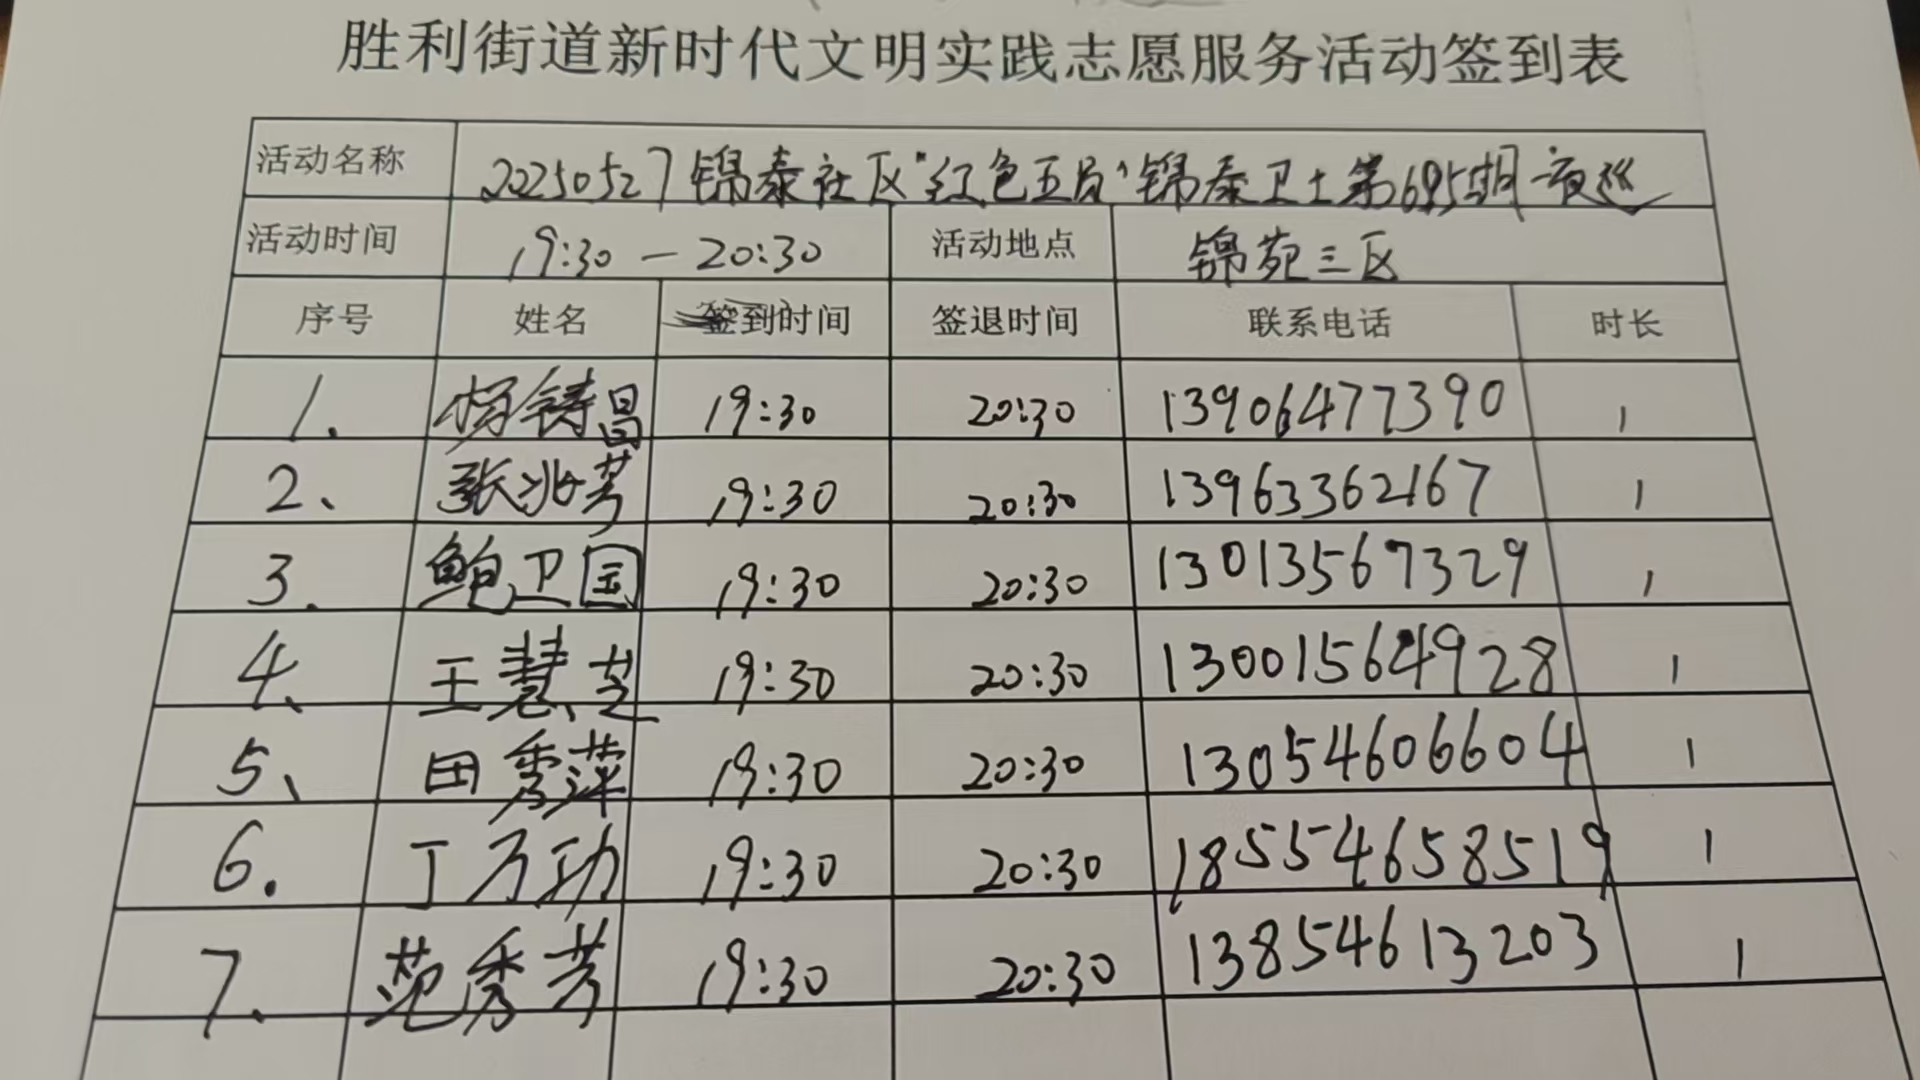 胜利街道新时代文明实践志愿服务活动签到表
活动名称 20250527锦泰社区"红色五员"锦泰卫士第695期夜巡
活动时间 19:30—20:30 活动地点 锦苑三区
序号 姓名 签到时间 签退时间 联系电话 时长
1. 杨铸昌 19:30 20:30 13906477390 1
2、 张兆芳 19:30 20:30 13963362167 1
3. 鲍卫国 19:30 20:30 13013567329 1
4、 王慧芝 19:30 20:30 13001564928 1
5、 田秀萍 19:30 20:30 13054606604 1
6. 丁万功 19:30 20:30 18554658519 1
7. 范秀芳 19:30 20:30 13854613203 1